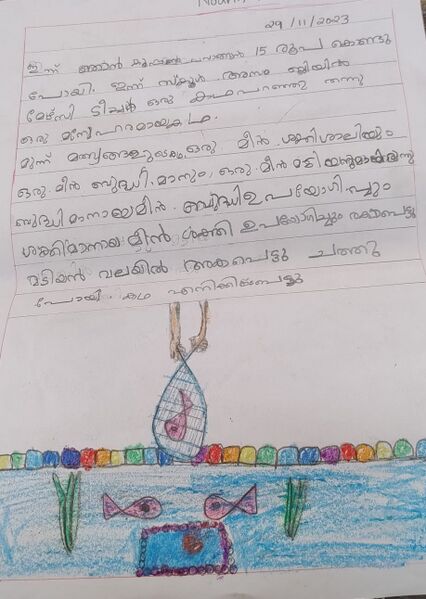 29/11/2023
ഇന്ന് ഞാൻ 15 രൂപ കൊണ്ടു
പോയി. ഇന്ന് സ്കൂൾ
മേഴ്സി ടീച്ചർ ഒരു കഥ പറഞ്ഞു തന്നു
ഒരു മനോഹരമായ കഥ.
മൂന്ന് ഒരു മീൻ ശക്തിശാലിയും
ഒരു മീൻ ബുദ്ധിമാനും, ഒരു മീൻ മടിയനുമായിരുന്നു
ബുദ്ധിമാനായ മീൻ ബുദ്ധി ഉപയോഗിച്ചും
ശക്തിമാനായ മീൻ ശക്തി ഉപയോഗിച്ചും രക്ഷപെട്ടു
മടിയൻ വലയിൽ അകപെട്ടു ചത്തു
പോയി. കഥ എനിക്കിഷ്ടപെട്ടു